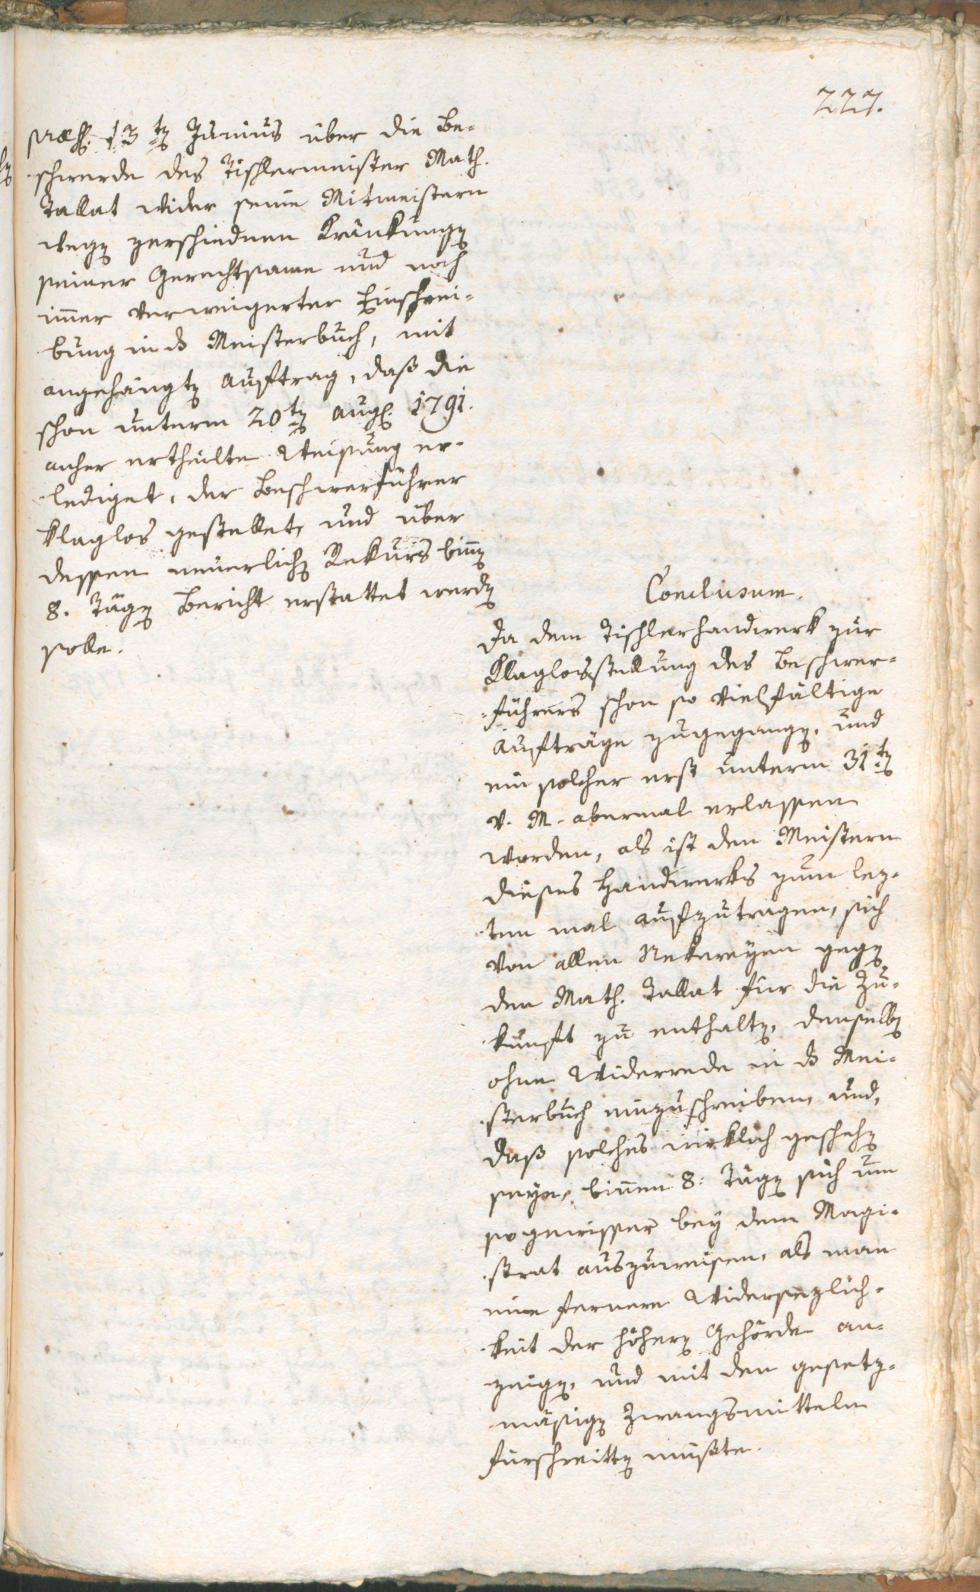 227.
præs. 13ten Junius über die Be-
schwerde des Tischlermeister Math.
Tallat wider seine Mitmeistern
wegen verschiednen Kränkungen
seiner Gerechtsame und noch
immer verweigerter Einschrei-
bung in das Meisterbuch, mit
angehängten Auftrag, daß die
schon unterm 20ten Aug. 1791.
anher ertheilte Weisung er-
lediget, der Beschwerführer
klaglos gestellet, und über
dessen neuerlichen Rekurs binnen
8. Tägen Bericht erstattet werden
solle.
Conclusum.
Da dem Tischlerhandwerk zur
Klaglosstellung des Beschwer-
führers schon so vielfältige
Aufträge zugegangen, und
ein solcher erst unterm 31ten
v. M. abermal erlassen
worden, als ist den Meistern
dieses Handwerks zum lez-
ten mal aufzutragen, sich
von allen Nekereyen gegen
den Math. Tallat für die Zu-
kunft zu enthalten, denselben
ohne Widerrede in das Mei-
sterbuch einzuschreiben, und,
daß solches wirklich geschehen
seye, binnen 8. Tägen sich um
so gewisser bey dem Magi-
strat auszuweisen, als man
eine fernere Widersezlich-
keit der höhern Behörde an-
zeigen, und mit den gesetz-
mäßigen Zwangsmitteln
fürschreitten müßte.